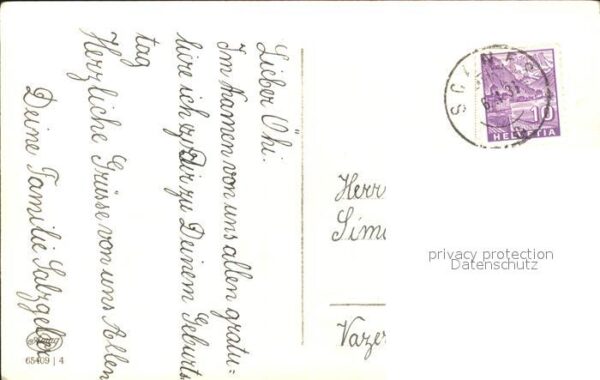 Lieber Öhi.
Im Namen von uns allen gratu=
liere ich Dir zu Deinem Geburts
tag
Herzliche Grüsse von uns Allen
Deine Familie Salzgeber
Herr
Sim
Vazer
HELVETIA
10
privacy protection
Datenschutz
65409 | 4